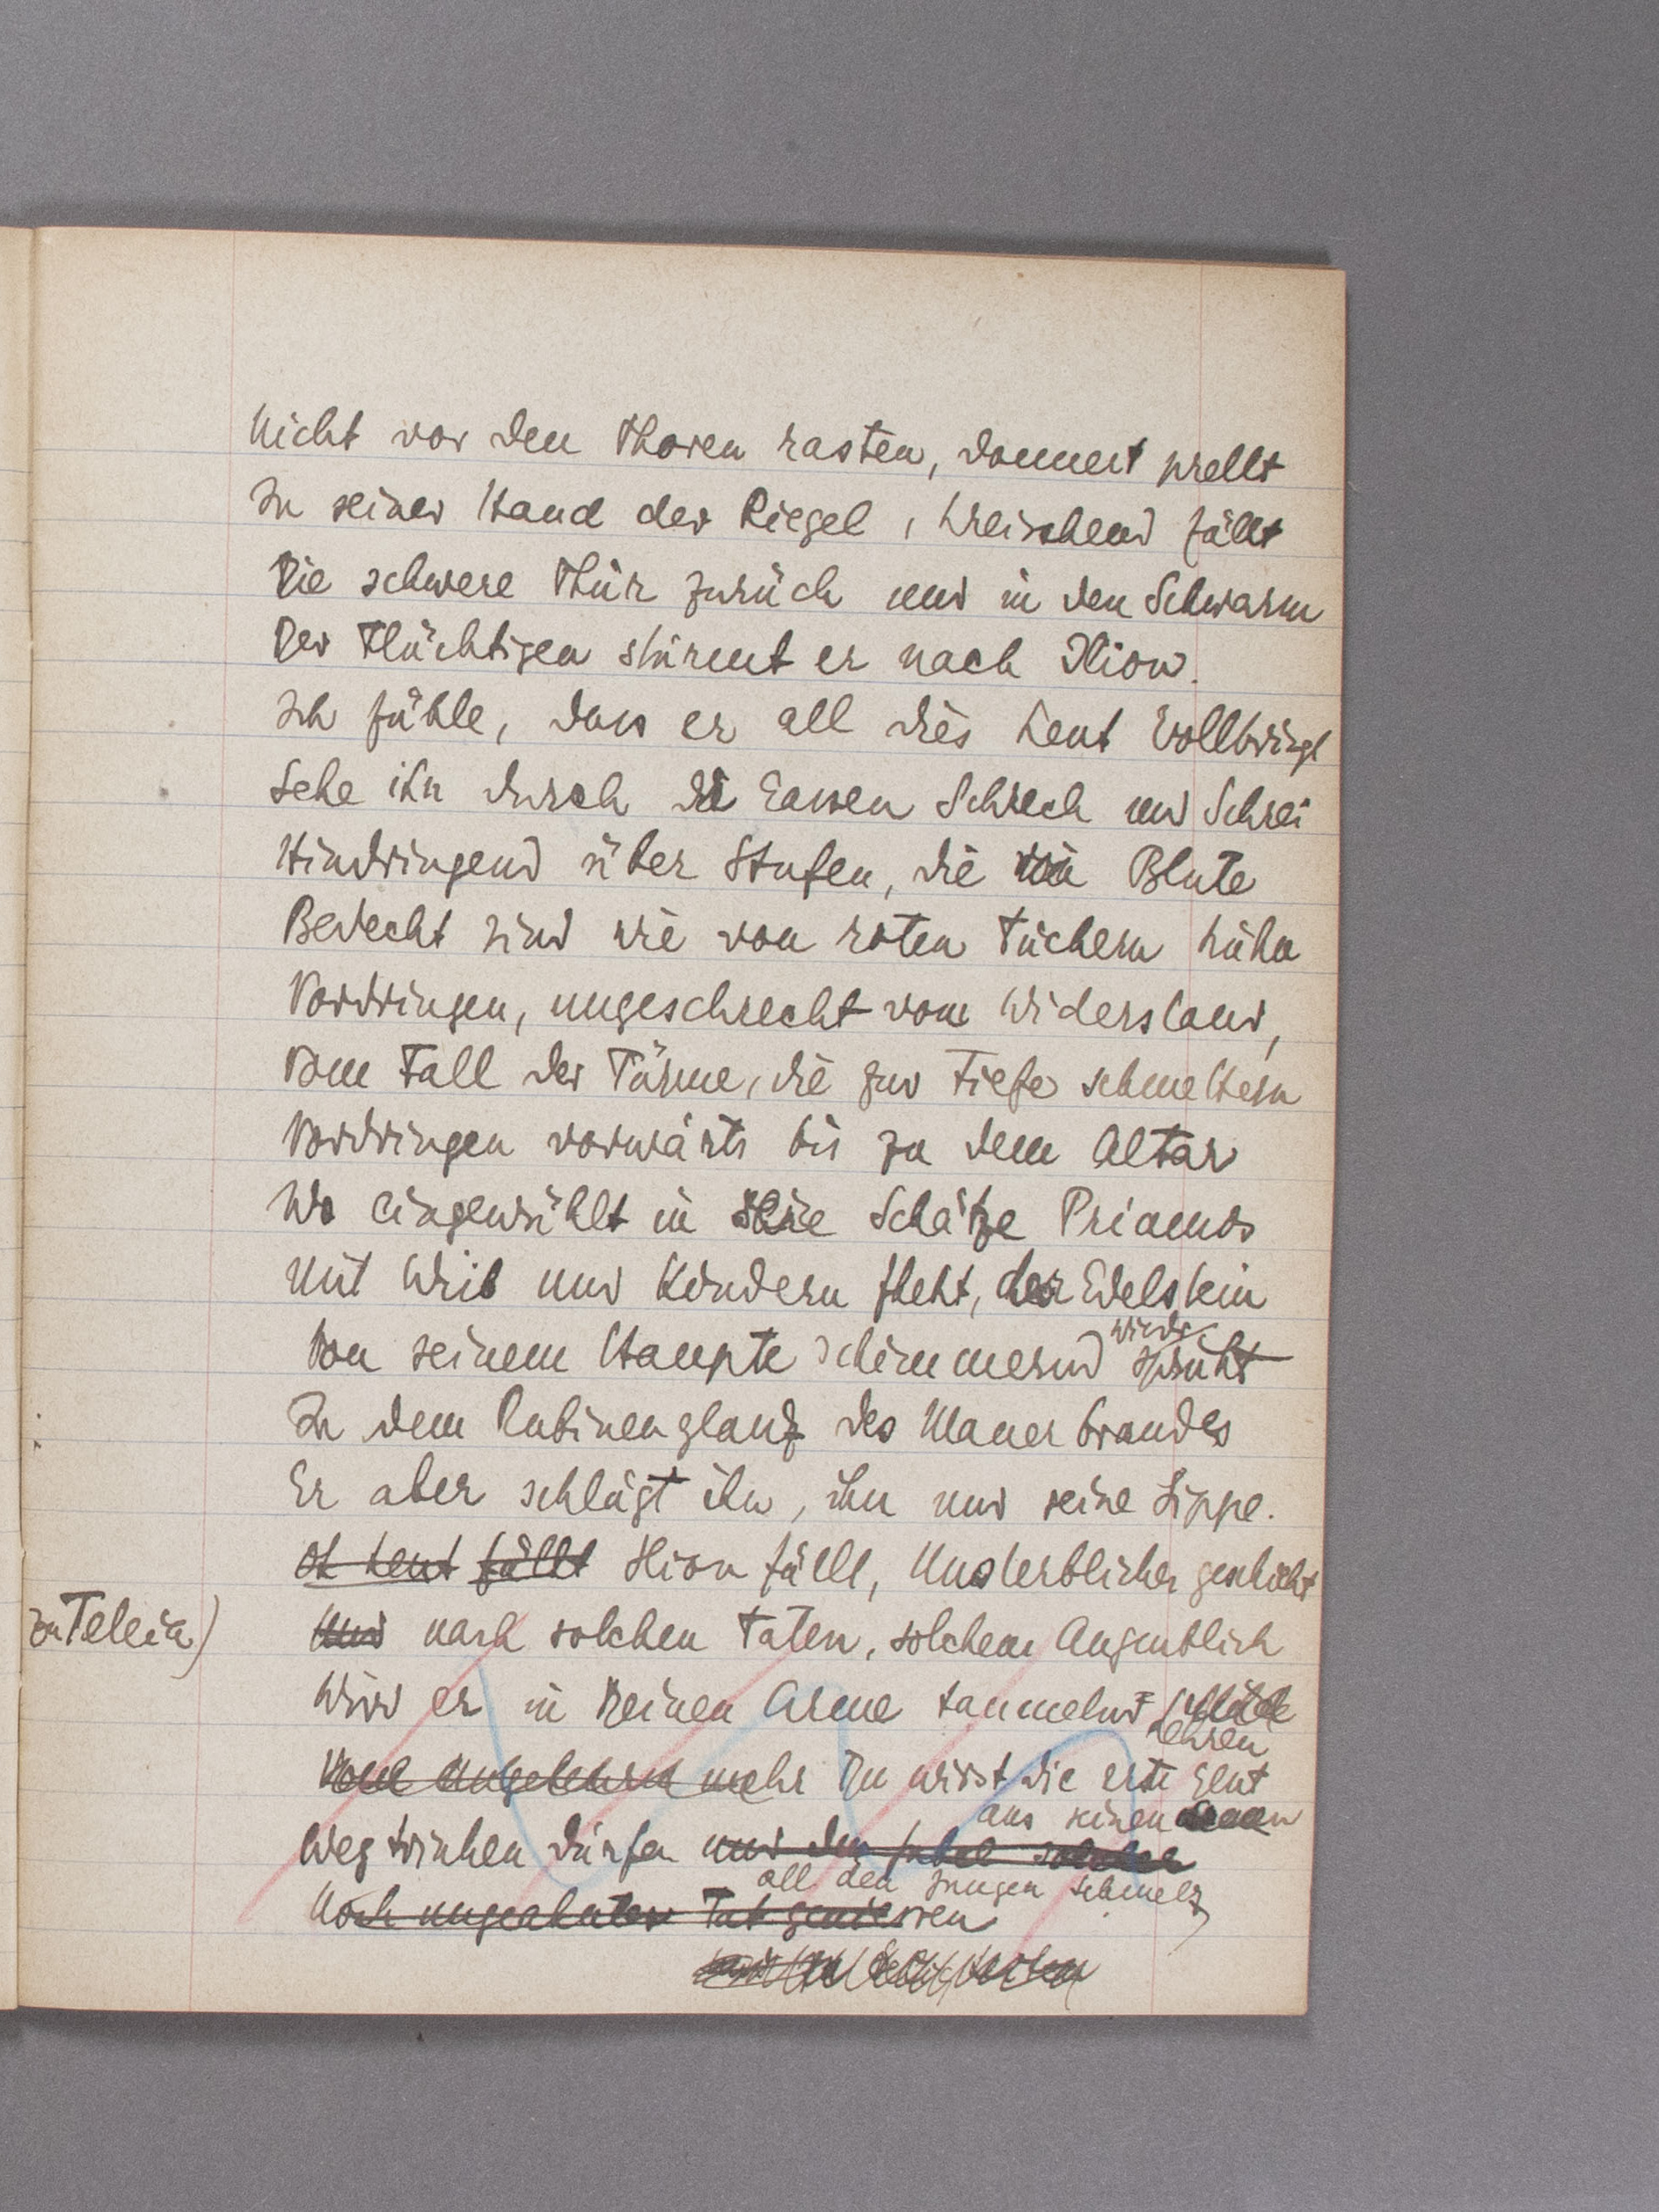 Nicht vor den Thoren rasten, donnert prellt
In seiner Hand der Riegel, kreischend fällt
Die schwere Thür zurück und in den Schwarm
Der Flüchtigen stürmt er nach Ilion.
Ich fühle, dass er all dies heut vollbringt
Sehe ihn durch die Gassen Schreck und Schrei
Hindringend über Stufen, die von Blute
Bedeckt sind wie von roten Tüchern kühn
Vordringen, ungeschreckt vom Widerstand,
Vom Fall der Türme, die zur Tiefe schmettern
Vordringen vorwärts bis zu dem Altar
Wo eingewühlt in Schätze Priamos
Mit Weib und Kindern fleht, der Edelstein
wieder
Von seinem Haupte schimmernd sprüht
In dem Rubinenglanz des Mauerbrandes
Er aber schlägt ihn, ihn und seine Sippe.
heut fällt Ilion fällt, Unsterbliches geschieht
zu Teleia)
Und nach solchen Taten, solchem Augenblick
Wird er in Deinen Arme taumelnd
kehren
mehr Du wirst die erste Glut
aus seinen
Wegtrinken dürfen und den Jubel solcher
all den jungen Schmelz
Noch ungeahnter Tat geniessen